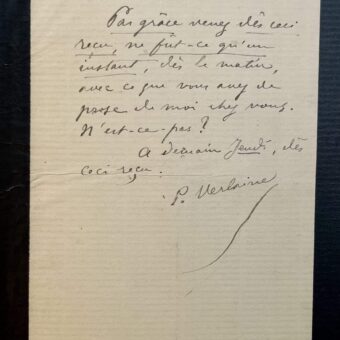 Par grâce venez dès ceci
reçu, ne fût-ce qu'un
instant, dès le matin,
avec ce que vous avez de
prose de moi chez vous.
N'est-ce-pas ?
A demain Jeudi, dès
ceci reçu.
P. Verlaine